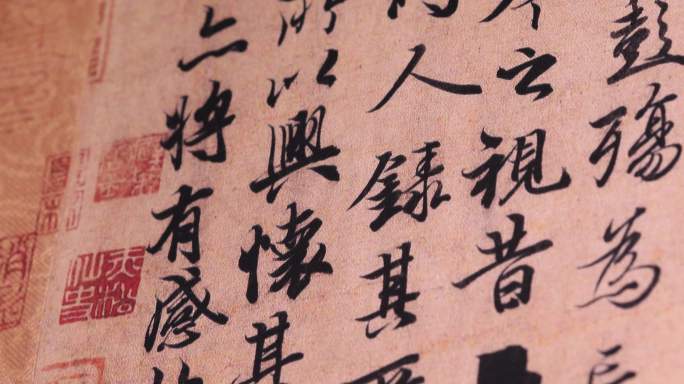 彭殤為
今之視昔
時人錄其所
所以興懷其
亦將有感